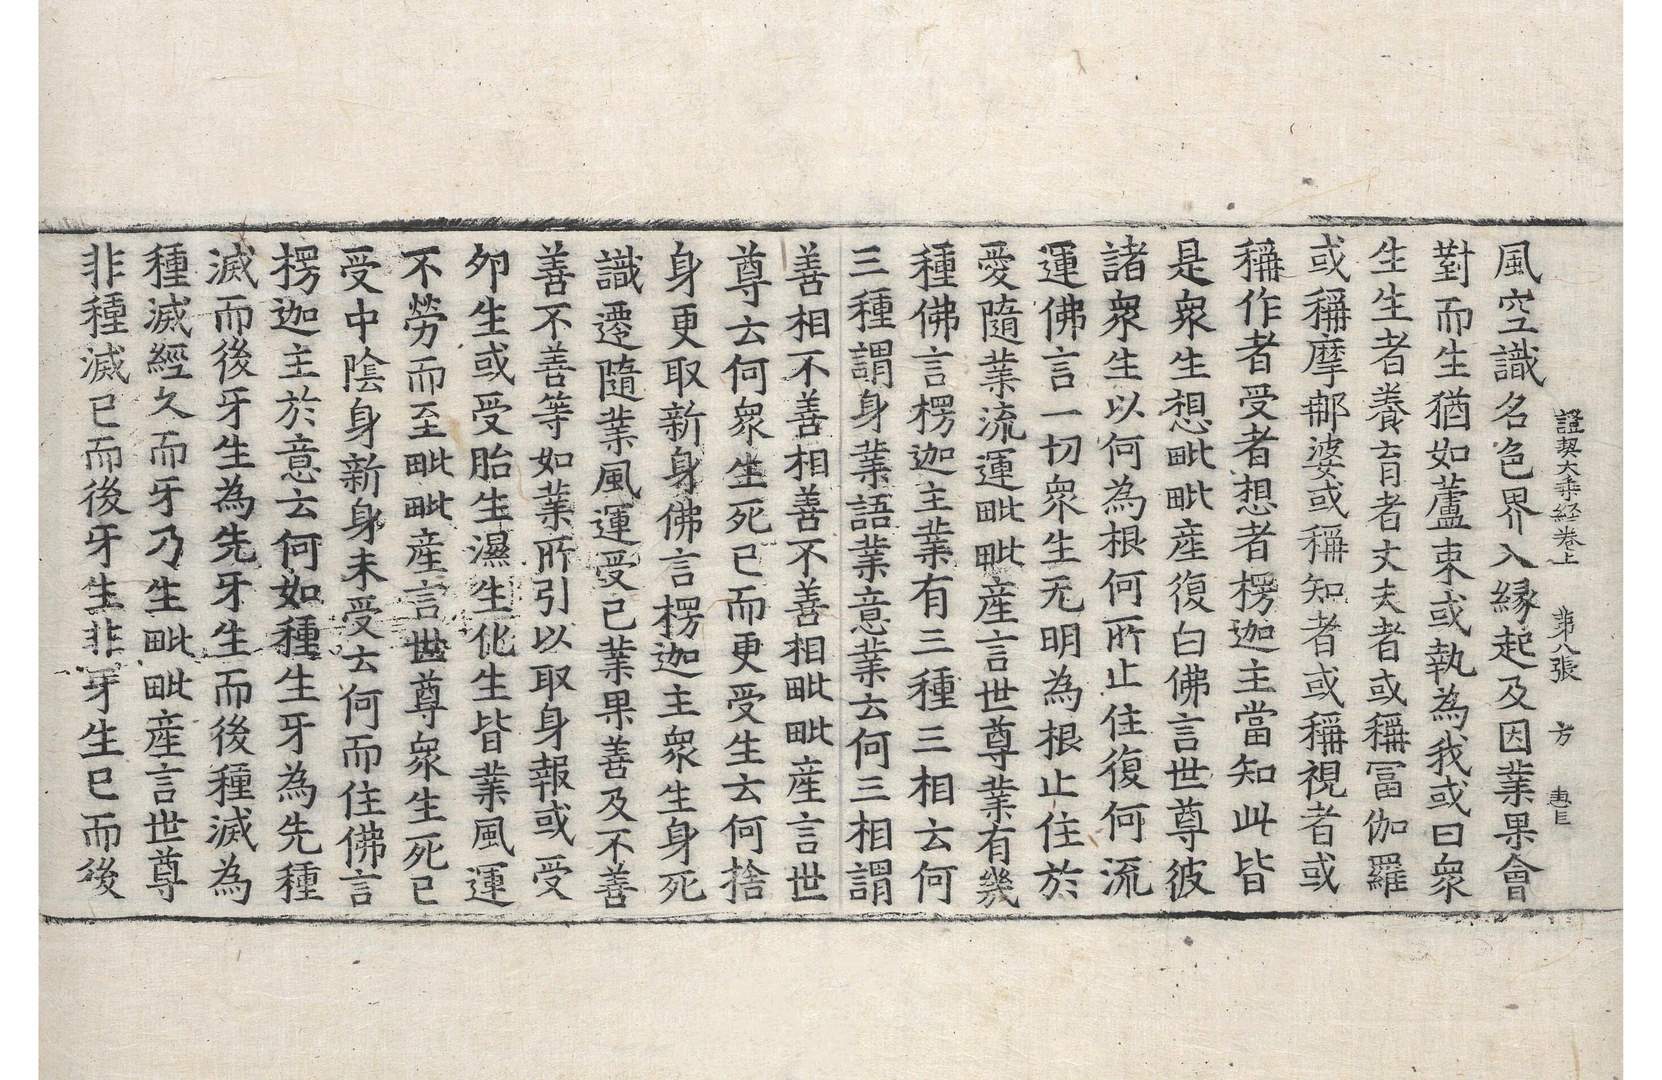 證契大乘經卷上　第八張　方　惠巨
風空識名色界入緣起及因業果會
對而生猶如蘆束或執為我或曰衆
生生者養育者丈夫者或稱冨伽羅
或稱摩㮈婆或稱知者或稱視者或
稱作者受者想者楞迦主當知此皆
是衆生想毗毗產復白佛言世尊彼
諸衆生以何為根何所止住復何流
運佛言一切衆生无明為根止住於
愛隨業流運毗毗產言世尊業有幾
種佛言楞迦主業有三種三相云何
三種謂身業語業意業云何三相謂
善相不善相善不善相毗毗產言世
尊云何衆生死已而更受生云何捨
身更取新身佛言楞迦主衆生身死
識遷隨業風運受已業果善及不善
善不善等如業所引以取身報或受
卵生或受胎生濕生化生皆業風運
不勞而至毗毗產言世尊衆生死已
受中陰身新身未受云何而住佛言
楞迦主於意云何如種生牙為先種
滅而後牙生為先牙生而後種滅為
種滅經久而牙乃生毗毗產言世尊
非種滅已而後牙生非牙生已而後